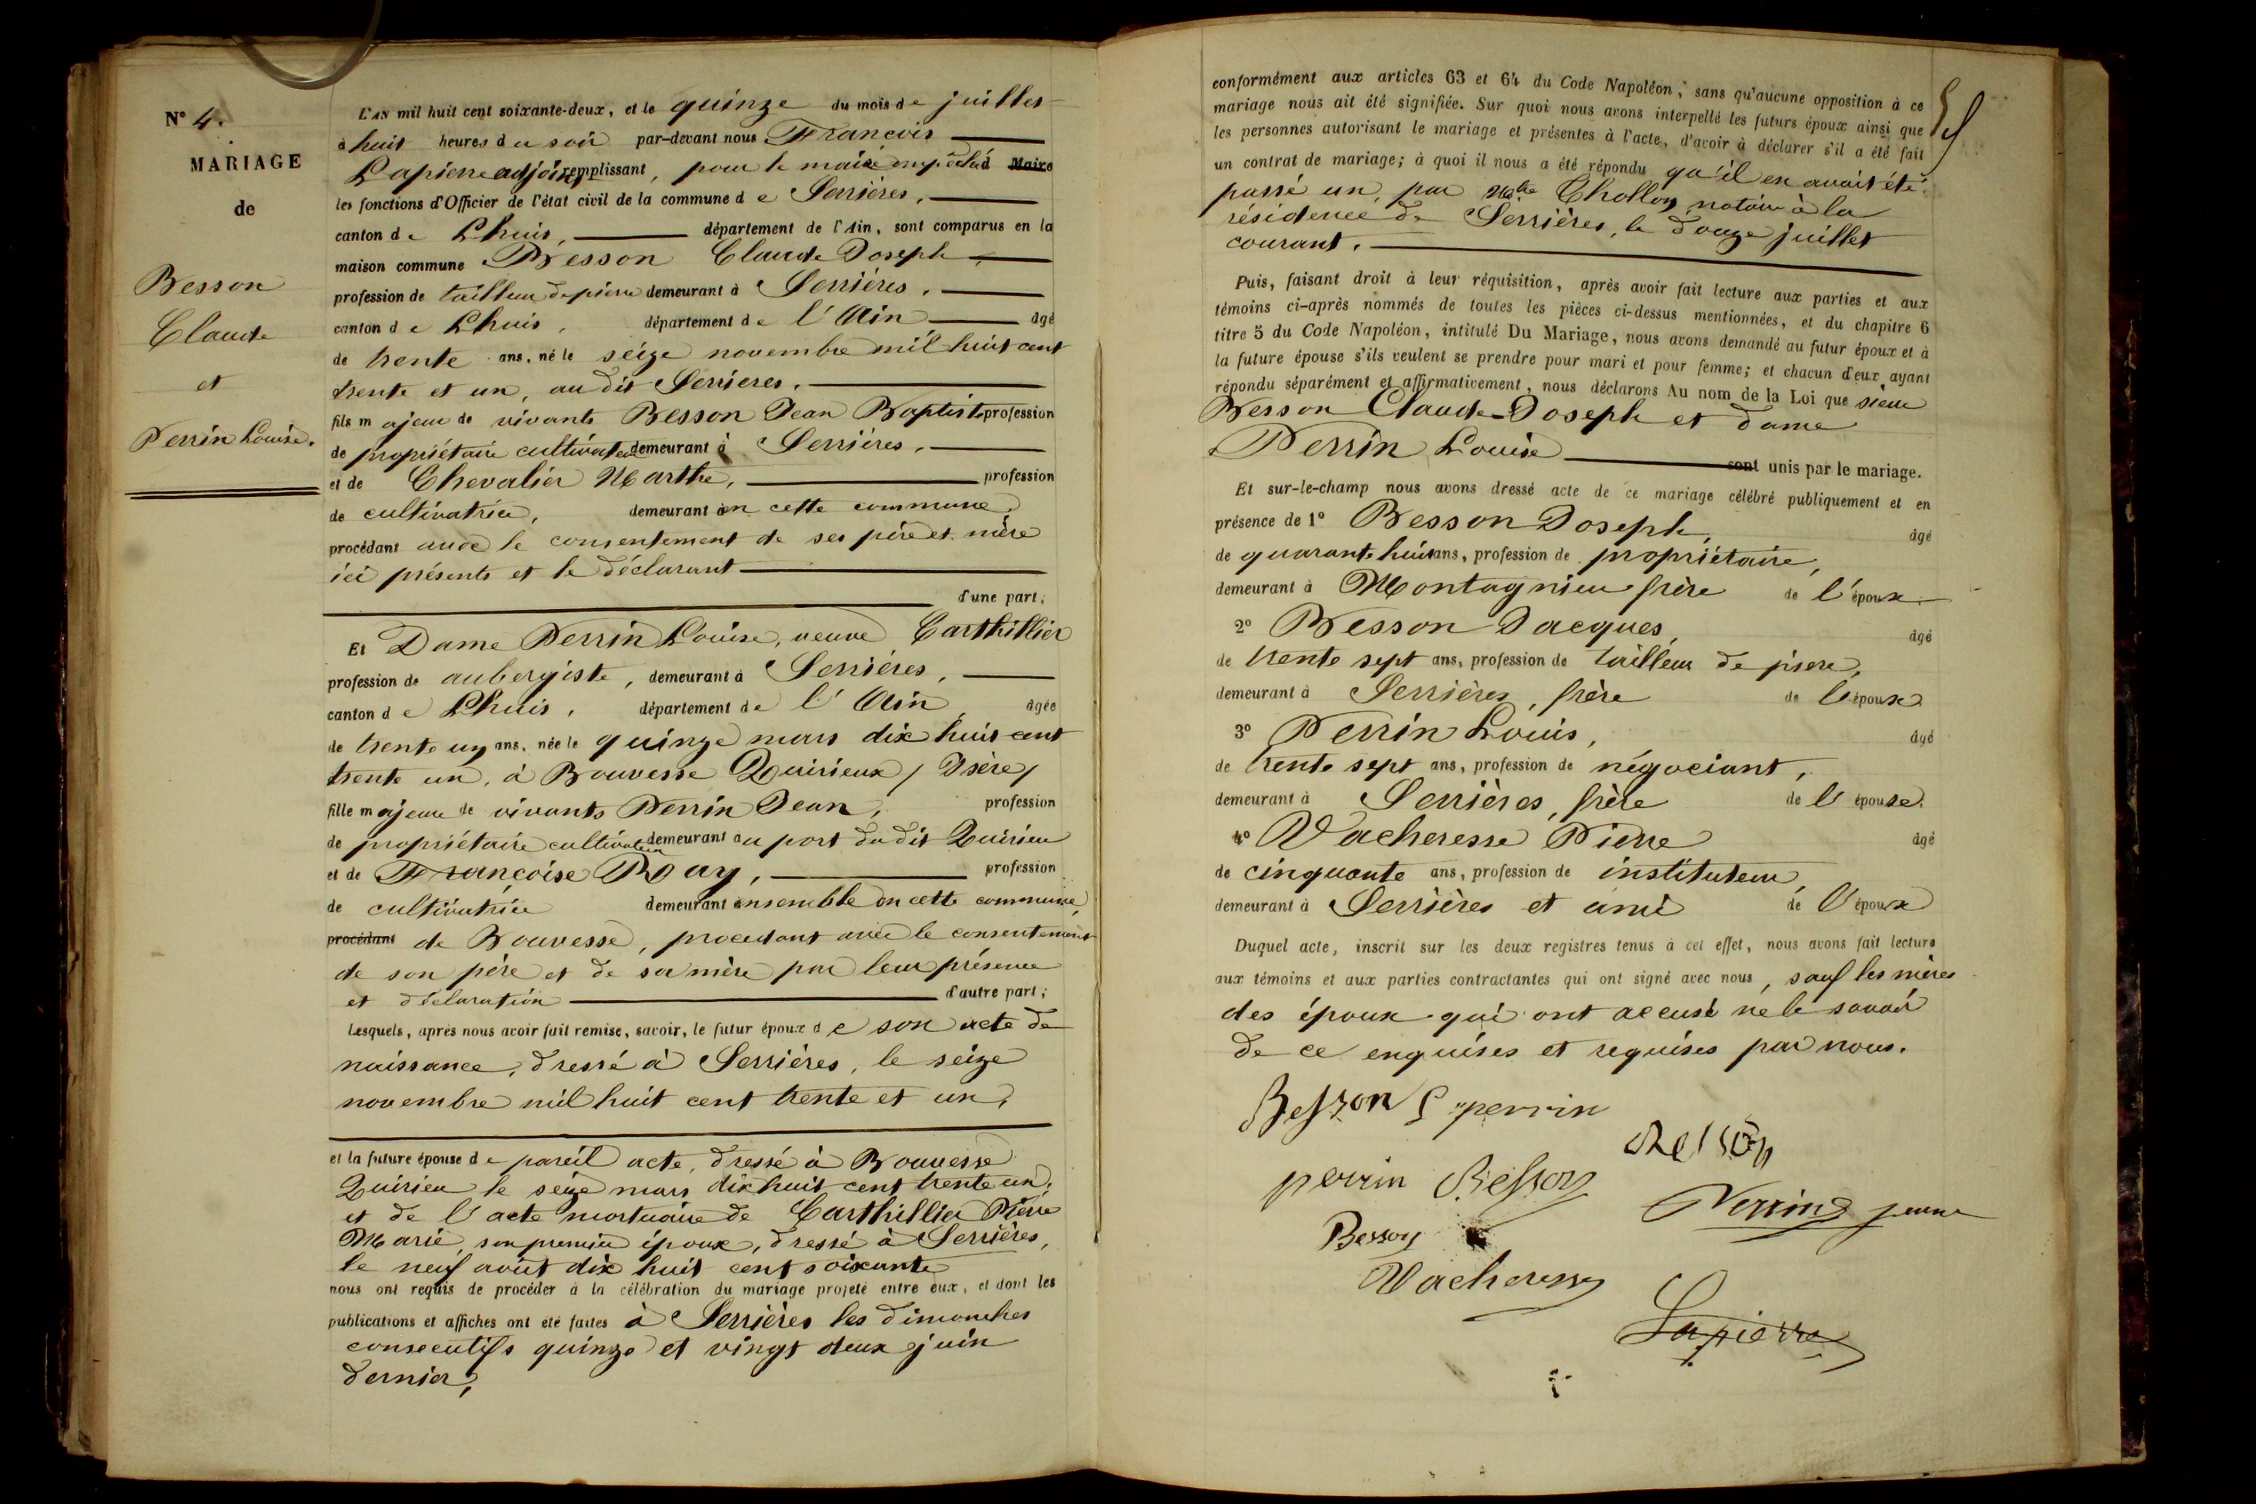 N° 4.
MARIAGE
de
Besson
Claude
et
Perrin Louise.
L'AN mil huit cent soixante-deux, et le quinze du mois de juillet
à huit heures du soir par-devant nous François
Lapierre adjoint remplissant, pour le maire empêché Maire
les fonctions d'Officier de l'état civil de la commune de Serrières,
canton de Lhuis, département de l'Ain, sont comparus en la
maison commune Besson Claude Joseph,
profession de tailleur de pierre demeurant à Serrières,
canton de Lhuis, département de l'Ain âgé
de trente ans, né le seize novembre mil huit cent
trente et un, au dit Serrieres.
fils majeur de vivants Besson Jean Baptiste profession
de propriétaire cultivateur demeurant à Serrières,
et de Chevalier Marthe, profession
de cultivatrice, demeurant en cette commune,
procédant avec le consentement de ses père et mère
ici présents et le déclarant
d'une part;
Et Dame Perrin Louise, veuve Carthillier
profession de aubergiste, demeurant à Serrières,
canton de Lhuis, département de l'Ain, âgée
de trente un ans, née le quinze mars dix huit cent
trente un, à Bouvesse Quirieux / Isère /
fille majeure de vivants Perrin Jean, profession
de propriétaire cultivateur demeurant au port du dit Quirieu
et de Françoise Ray, profession
de cultivatrice demeurant ensemble en cette commune,
procédant de Bouvesse, procedant avec le consentement
de son père et de sa mère par leur présence
et déclaration d'autre part;
Lesquels, après nous avoir fait remise, savoir, le futur époux de son acte de
naissance, dressé à Serrières, le seize
novembre mil huit cent trente et un,
et la future épouse de pareil acte, dressé à Bouvesse
Quirieu le seize mars dix huit cent trente un,
et de l'acte mortuaire de Carthillier Pierre
Marie, son premier époux, dressé à Serrières,
le neuf août dix huit cent soixante
nous ont requis de procéder à la célébration du mariage projeté entre eux, et dont les
publications et affiches ont été faites à Serrières les dimanches
consecutifs quinze et vingt deux juin
dernier,
conformément aux articles 63 et 64 du Code Napoléon, sans qu'aucune opposition à ce
mariage nous ait été signifiée. Sur quoi nous avons interpellé les futurs époux ainsi que
les personnes autorisant le mariage et présentes à l'acte, d'avoir à déclarer s'il a été fait
un contrat de mariage; à quoi il nous a été répondu qu'il en avait été
passé un, par Mtre Chollon notaire à la
résidence de Serrières, le douze juillet
courant.
Puis, faisant droit à leur réquisition, après avoir fait lecture aux parties et aux
témoins ci-après nommés de toutes les pièces ci-dessus mentionnées, et du chapitre 6
titre 5 du Code Napoléon, intitulé Du Mariage, nous avons demandé au futur époux et à
la future épouse s'ils veulent se prendre pour mari et pour femme; et chacun d'eux ayant
répondu séparément et affirmativement, nous déclarons Au nom de la Loi que sieur
Besson Claude-Joseph et dame
Perrin Louise sont unis par le mariage.
Et sur-le-champ nous avons dressé acte de ce mariage célébré publiquement et en
présence de 1° Besson Joseph, âgé
de quarante huit ans, profession de propriétaire,
demeurant à Montagnieu frère de l'époux.
2° Besson Jacques, âgé
de trente sept ans, profession de tailleur de pierre,
demeurant à Serrières, frère de l'époux
3° Perrin Louis, âgé
de trente sept ans, profession de négociant,
demeurant à Serrières, frère de l'épouse.
4° Vacheresse Pierre âgé
de cinquante ans, profession de instituteur,
demeurant à Serrières et ami de l'époux
Duquel acte, inscrit sur les deux registres tenus à cet effet, nous avons fait lecture
aux témoins et aux parties contractantes qui ont signé avec nous, sauf les mères
des époux qui ont accusé ne le savoir
de ce enquises et requises par nous.
Besson L perrin
Besson
perrin Besson
Perrin jeune
Besson
Vacheresse
Lapierre